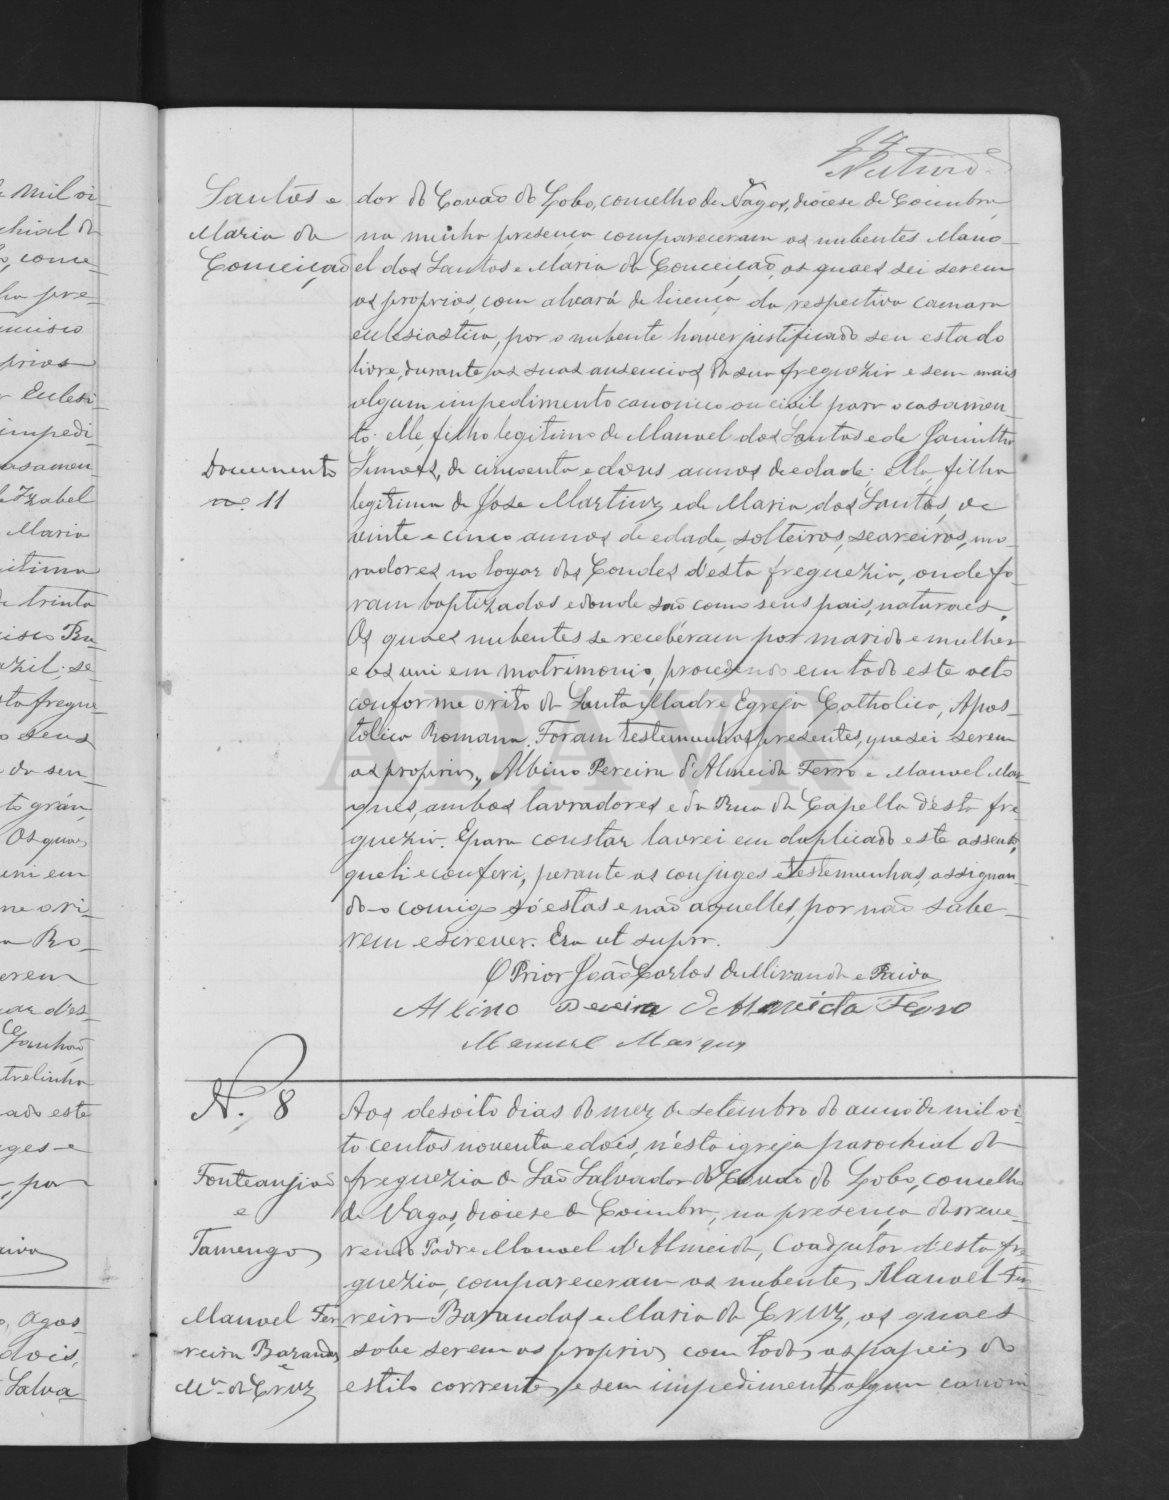 Santos e
Maria da
Conceição
Documento
nº 11
dor do Covão do Lobo, concelho de Vagos, diocese de Coimbra,
na minha presença compareceram os nubentes Mano-
el dos Santos e Maria da Conceição, os quaes sei serem
os proprios, com alvará de licença da respectiva camara
eclesiastica, por o nubente haver justificado seu estado
livre, durante as suas ausencias da sua freguezia e sem mais
algum impedimento canonico ou civil para o casamen-
to: elle, filho legitimo de Manoel dos Santos e de Jacintha
de cincoenta e dous annos de edade; ella, filha
legitima de José Martins e de Maria dos Santos, de
vinte e cinco annos de edade, solteiros, seareiros, mo-
radores no logar dos Condes d'esta freguezia, onde fo-
ram baptizados e donde são como seus pais, naturaes.
Os quaes nubentes se receberam por marido e mulher
e os uni em matrimonio, procedendo em todo este acto
conforme o rito da Santa Madre Egreja Catholica, Apos-
tolica Romana. Foram testemunhas presentes, que sei serem
os proprios, Albino Pereira d'Almeida Ferro e Manoel Mar-
ques, ambos lavradores e da Rua da Capella d'esta fre
guezia. E para constar lavrei em duplicado este assento,
que li e conferi, perante os conjuges e testemunhas, assignan-
do-o comigo só estas e não aquelles, por não sabe-
rem escrever. Era ut supra.
O Prior João Carlos de Miranda e Paiva
Albino Pereira d'Almeida Ferro
Manuel Marques
N. 8
Fonteanjão
e
Tamengos
Manoel Fer-
reira Barandas
e
Mª da Cruz
Aos desoito dias do mez de setembro do anno de mil oi-
to centos noventa e dois, n'esta igreja parochial da
freguezia de São Salvador do Covão do Lobo, concelho
de Vagos, diocese de Coimbra, na presença do reve-
rendo Padre Manoel d'Almeida, Coadjutor d'esta fre
guezia, compareceram os nubentes Manoel Fer-
reira Barandas e Maria da Cruz, os quaes
sobe serem os proprios com todos os papeis do
estilo correntes, e sem impedimento algum canoni-
ADAVR